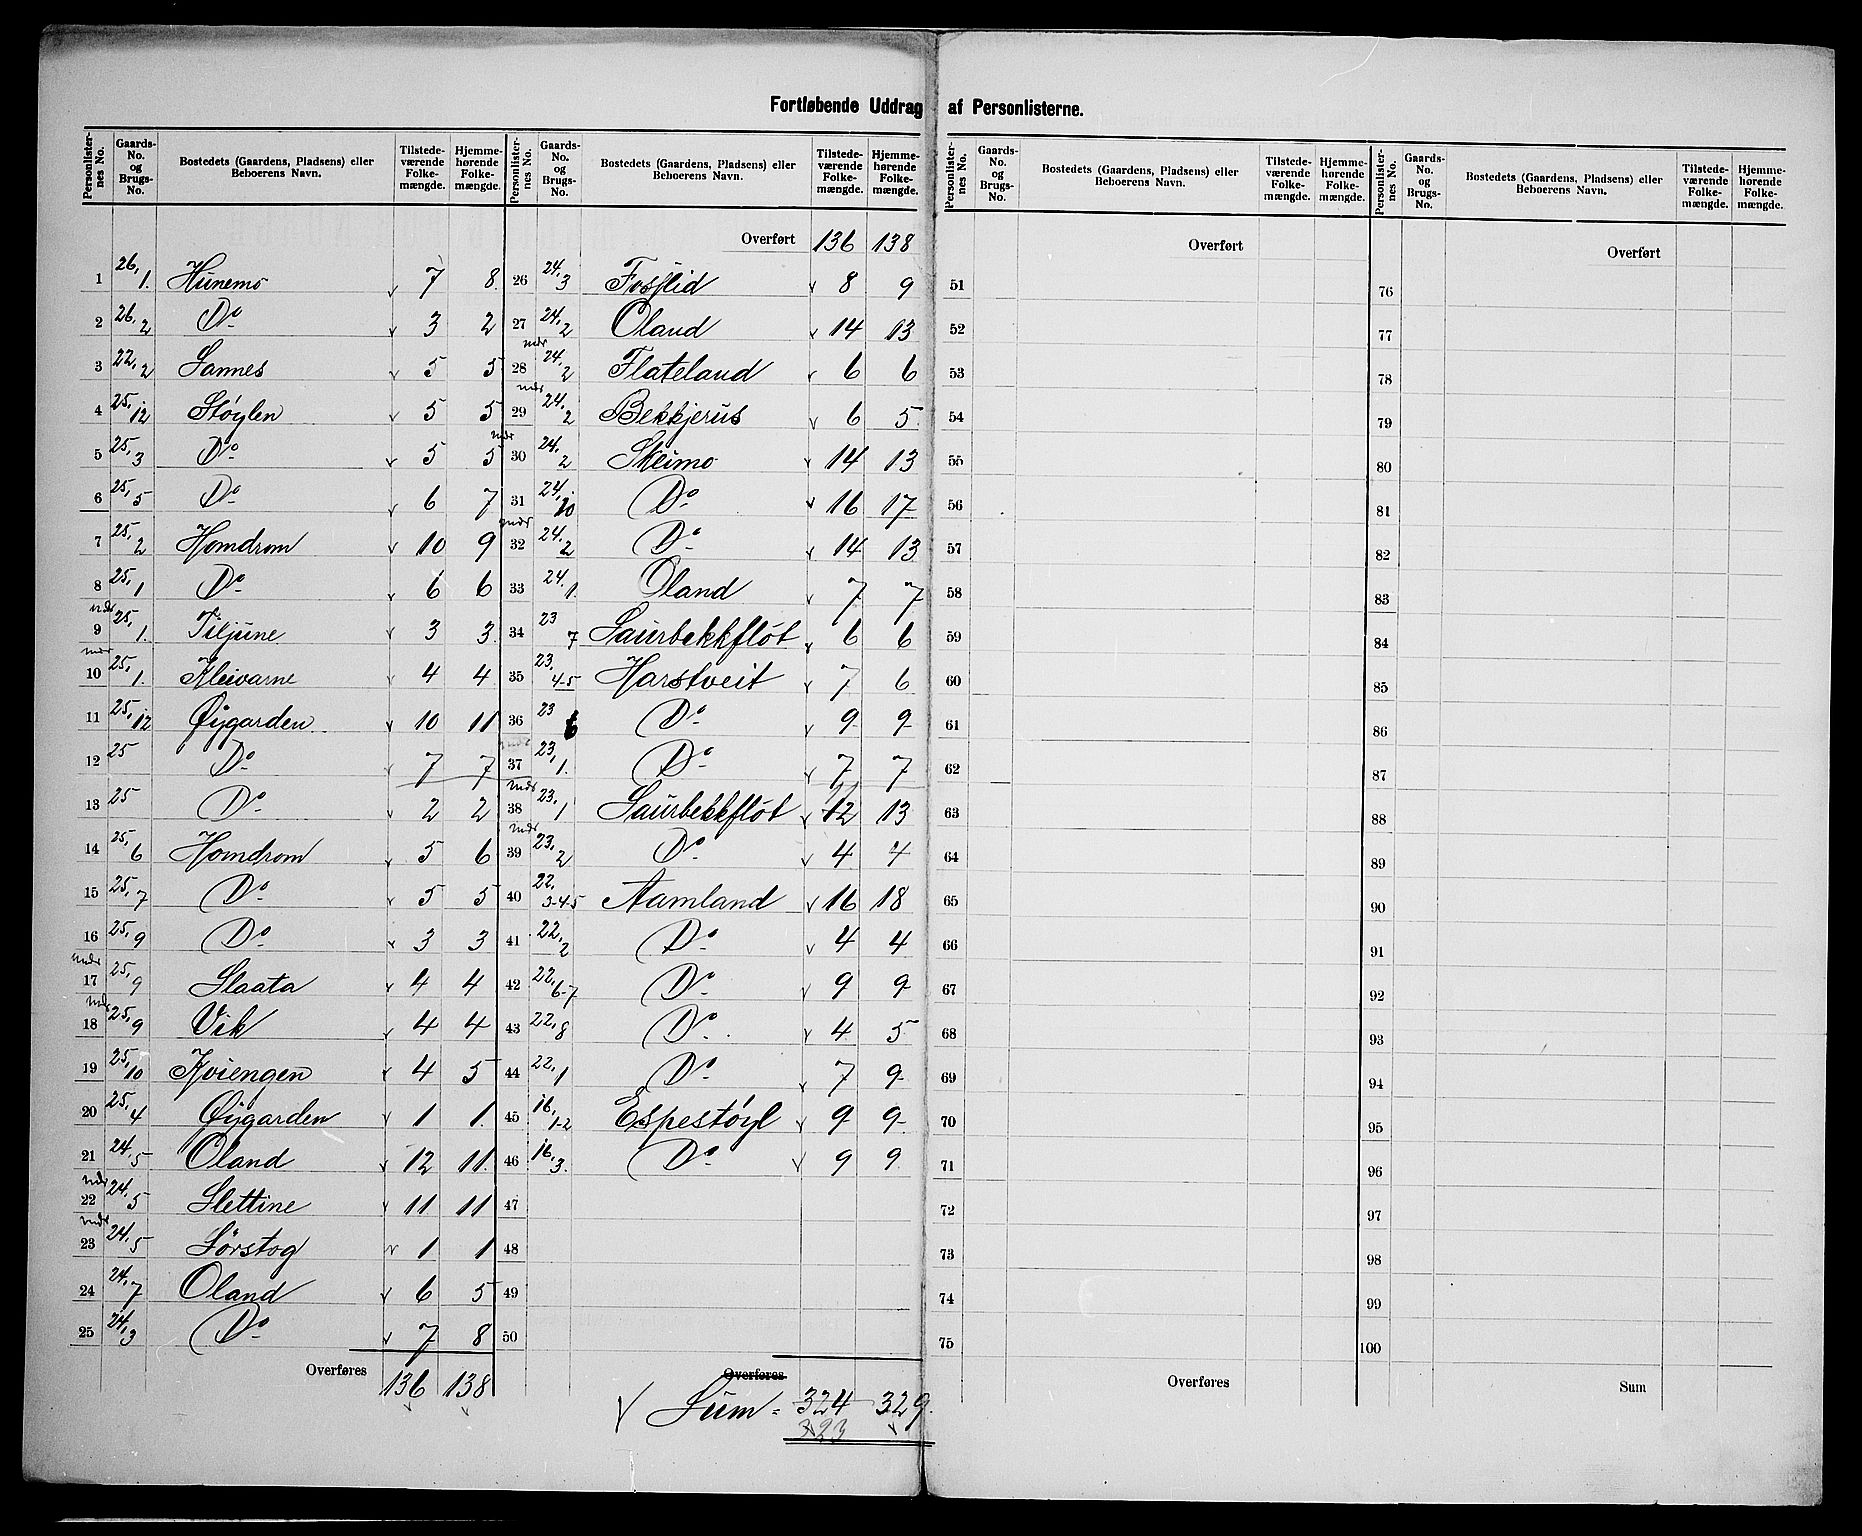 Fortløbende Uddrag af Personlisterne.
Personlisternes No. Gaards-No. og Brugs-No. Bostedets (Gaardens, Pladsens) eller Beboerens Navn. Tilstedeværende Folkemængde. Hjemmehørende Folkemængde.
1 26,1. Hunemo v 7 8.
2 26,2 Do v 3 2
3 22,2 Sannes v 5 5
4 25,12 Støylen v 5 5
5 25,3 Do v 5 5
6 25,5 Do v 6 7
7 25,2 Homdrom v 10 9
8 25,1 Do v 6 6
9 ndr 25,1. Tiljune v 3 3.
10 ndr 25,1. Kleivarne v 4 4
11 25,12 Øygarden v 10 11
12 25 Do v 7 7
13 25 Do v 2 2
14 25,6 Homdrom v 5 6
15 25,7 Do v 5 5
16 25,9 Do v 3 3
17 ndr 25,9 Slaata v 4 4
18 ndr 25,9 Vik v 4 4
19 25,10 Kviengen v 4 5
20 25,4 Øygarden v 1 1.
21 24,5 Oland v 12 11.
22 ndr 24,5 Slettine v 11 11
23 ndr 24,5 Sørstog v 1 1
24 24,7 Oland v 6 5
25 24,3 Do v 7 8
Overføres 136 138
Personlisternes No. Gaards-No. og Brugs-No. Bostedets (Gaardens, Pladsens) eller Beboerens Navn. Tilstedeværende Folkemængde. Hjemmehørende Folkemængde.
Overført 136 138
26 24,3 Fosslid v 8 9
27 24,2 Oland v 14 13
28 ndr 24,2 Flateland v 6 6
29 ndr 24,2 Bekkjerus v 6 5.
30 ndr 24,2 Skeimo v 14 13
31 24,10 Do v 16 17
32 ndr 24,2 Do v 14 13
33 24,1. Oland v 7 7
34 23 7 Saurbekkfløt v 6 6
35 23,4-5 Harstveit v 7 6
36 23 6 Do v 9 9
37 ndr 23,1. Do v 7 7
38 ndr 23,1 Saurbekkfløt v 12 13
39 ndr 23,2 Do v 4 4
40 22,3-4-5 Aamland v 16 18
41 22,2 Do v 4 4
42 22,6-7 Do v 9 9
43 22,8 Do v 4 5
44 22,1 Do v 7 9
45 16,1-2 Espestøyl v 9 9
46 16,3. Do v 9 9
47
48
49
50
Overføres
v Sum = 324 329.
323
Personlisternes No. Gaards-No. og Brugs-No. Bostedets (Gaardens, Pladsens) eller Beboerens Navn. Tilstedeværende Folkemængde. Hjemmehørende Folkemængde.
Overført
51
52
53
54
55
56
57
58
59
60
61
62
63
64
65
66
67
68
69
70
71
72
73
74
75
Overføres
Personlisternes No. Gaards-No. og Brugs-No. Bostedets (Gaardens, Pladsens) eller Beboerens Navn. Tilstedeværende Folkemængde. Hjemmehørende Folkemængde.
Overført
76
77
78
79
80
81
82
83
84
85
86
87
88
89
90
91
92
93
94
95
96
97
98
99
100
Sum